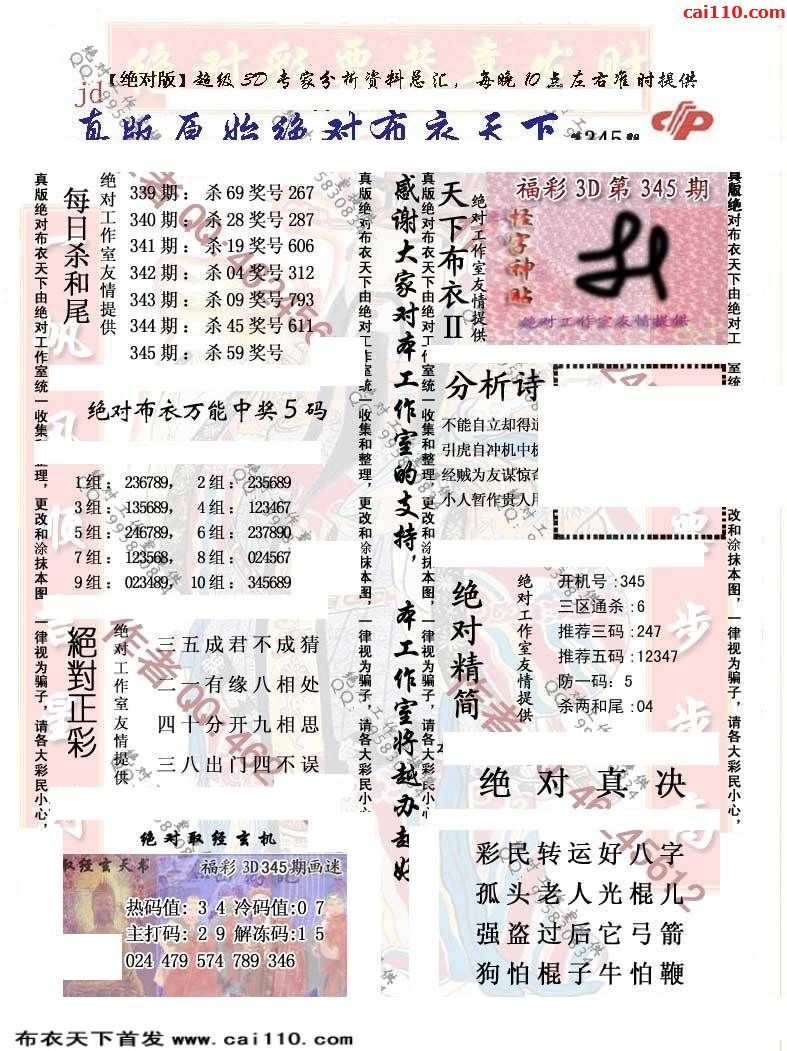 cai110.com
【绝对版】超级3D专家分析资料总汇，每晚10点左右准时提供
jd
真版原始绝对布衣天下
真版绝对布衣天下由绝对工作室统一收集和整理，更改和涂抹本图，一律视为骗子，请各大彩民小心，
每日杀和尾
绝对工作室友情提供
339期：杀69奖号267
340期：杀28奖号287
341期：杀19奖号606
342期：杀04奖号312
343期：杀09奖号793
344期：杀45奖号611
345期：杀59奖号
绝对布衣万能中奖5码
1组：236789，2组：235689
3组：135689，4组：123467
5组：246789，6组：237890
7组：123568，8组：024567
9组：023489，10组：345689
絕對正彩
绝对工作室友情提供
三五成君不成猜
二一有缘八相处
四十分开九相思
三八出门四不误
绝对取经玄机
取经玄天书
福彩3D345期画迷
热码值：3 4 冷码值:0 7
主打码：2 9 解冻码:1 5
024 479 574 789 346
真版绝对布衣天下由绝对工作室统一收集和整理，更改和涂抹本图，一律视为骗子，请各大彩民小心，
感谢大家对本工作室的支持，本工作室将越办越好
真版绝对布衣天下由绝对工作室统一收集和整理，更改和涂抹本图，一律视为骗子，请各大彩民小心，
天下布衣II
绝对工作室友情提供
福彩3D第345期
怪字神贴
绝对工作室友情提供
分析诗
不能自立却得
引虎自冲机中
经贼为友谋惊
小人暂作贵人
绝对精简
绝对工作室友情提供
开机号:345
三区通杀:6
推荐三码:247
推荐五码:12347
防一码：5
杀两和尾:04
绝对真决
彩民转运好八字
孤头老人光棍儿
强盗过后它弓箭
狗怕棍子牛怕鞭
真版绝对布衣天下由绝对工
室统
更改和涂抹本图，一律视为骗子，请各大彩民小心，
布衣天下首发 www.cai110.com